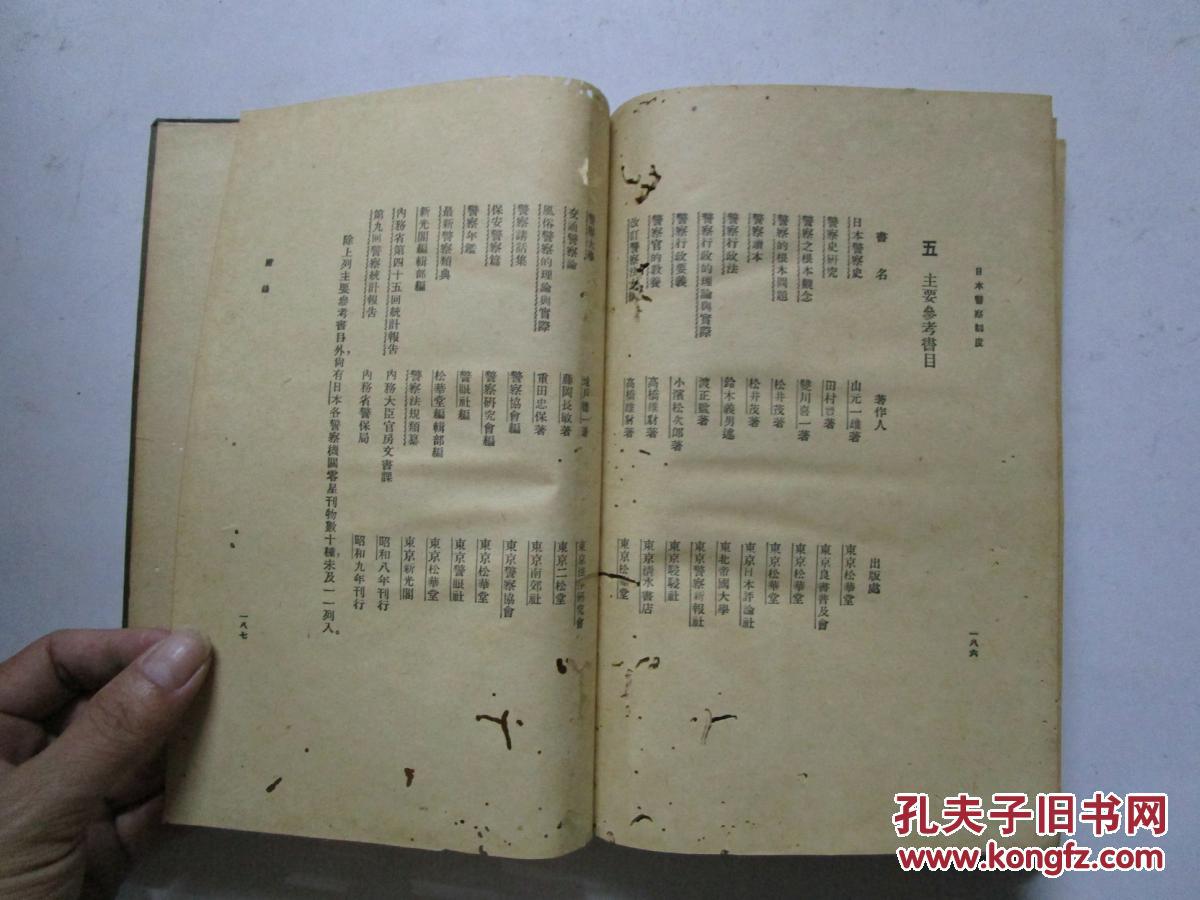 日本警察制度
一八六
五 主要參考書目
書名 著作人 出版處
日本警察史 山元一雄著 東京松華堂
警察史研究 田村豐著 東京良書普及會
警察之根本觀念 雙川喜一著 東京松華堂
警察的根本問題 松井茂著 東京松華堂
警察讀本 松井茂著 東京日本評論社
警察行政法 鈴木義男述 東北帝國大學
警察行政的理論與實際 渡正監著 東京警察新報社
警察行政要義 小濱松次郎著 東京巖松社
警察官的教養 高橋雄豺著 東京清水書店
改訂警察法 高橋雄豺著 東京松華堂
警察 一著 東京 研究會
交通警察論 藤岡長敏著 東京二松堂
風俗警察的理論與實際 重田忠保著 東京南郊社
警察講話集 警察協會編 東京警察協會
保安警察篇 警察研究會編 東京松華堂
警察年鑑 警眼社編 東京警眼社
最新警察類典 松華堂編輯部編 東京松華堂
新光閣編輯部編 警察法規類纂 東京新光閣
內務省第四十五回統計報告 內務大臣官房文書課 昭和八年刊行
第九回警察統計報告 內務省警保局 昭和九年刊行
除上列主要參考書目外，尚有日本各警察機關零星刊物數十種，未及一一列入。
附錄
一八七
孔夫子旧书网
www.kongfz.com